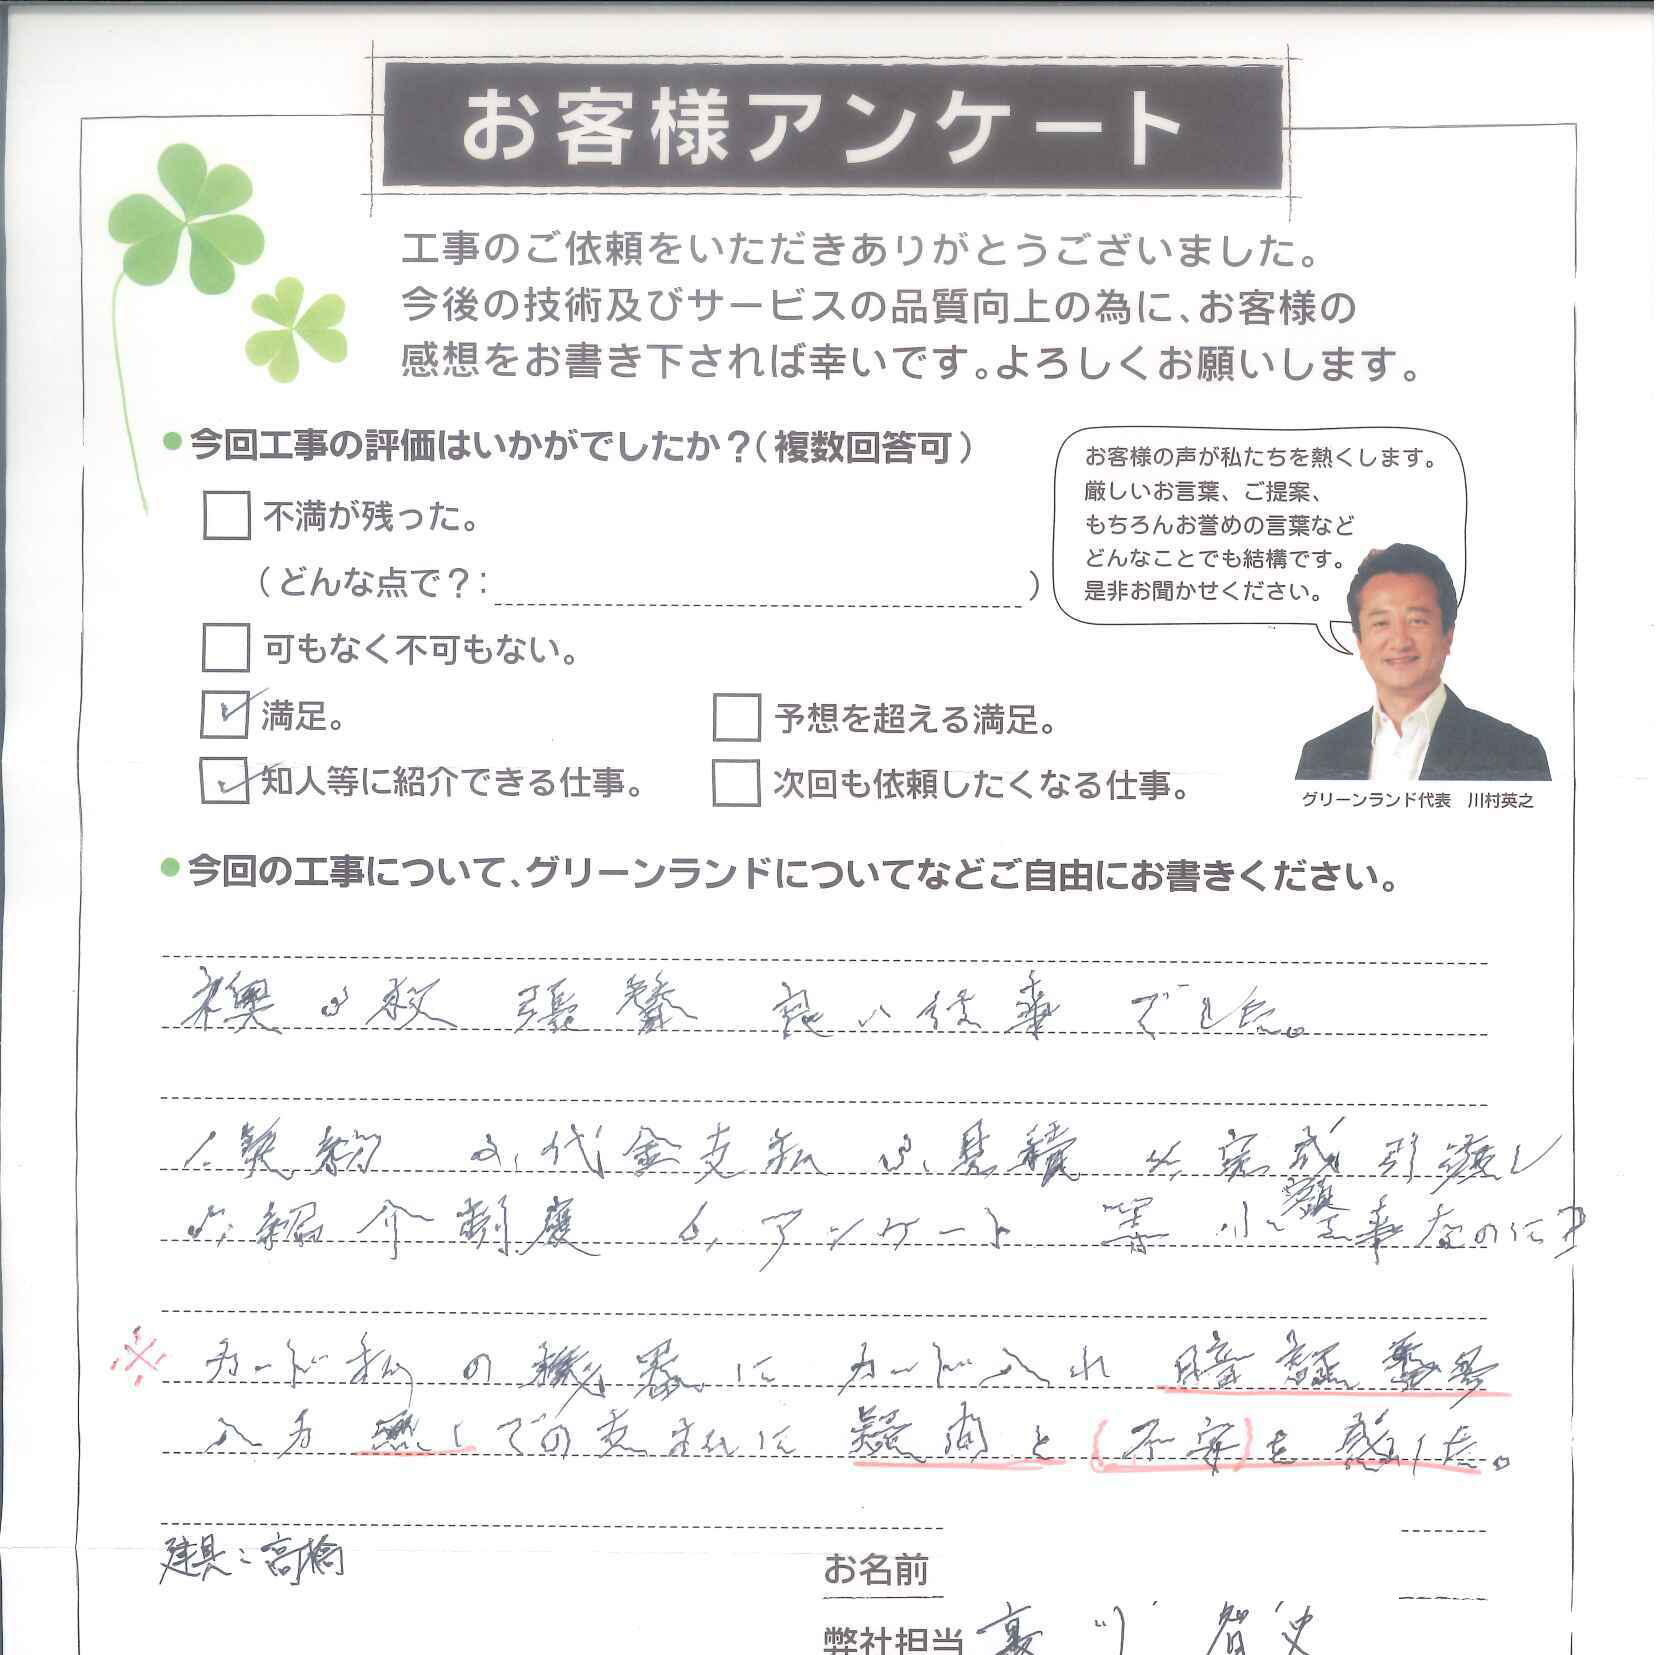 お客様アンケート
工事のご依頼をいただきありがとうございました。
今後の技術及びサービスの品質向上の為に、お客様の
感想をお書き下されば幸いです。よろしくお願いします。
今回工事の評価はいかがでしたか？（複数回答可）
不満が残った。
（どんな点で？： ）
可もなく不可もない。
満足。
予想を超える満足。
知人等に紹介できる仕事。
次回も依頼したくなる仕事。
お客様の声が私たちを熱くします。
厳しいお言葉、ご提案、
もちろんお誉めの言葉など
どんなことでも結構です。
是非お聞かせください。
グリーンランド代表 川村英之
今回の工事について、グリーンランドについてなどご自由にお書きください。
襖 張替 良い仕事でした。
1.契約 2.代金支払 3.見積 4.完成引渡し
5.紹介制度 6.アンケート 等 小額工事なのに?
※ カード払の機器に カード入れ 暗証番号
入力無しでの支払に 疑問と(不安)を感じた。
建具：高橋
お名前
弊社担当 智史